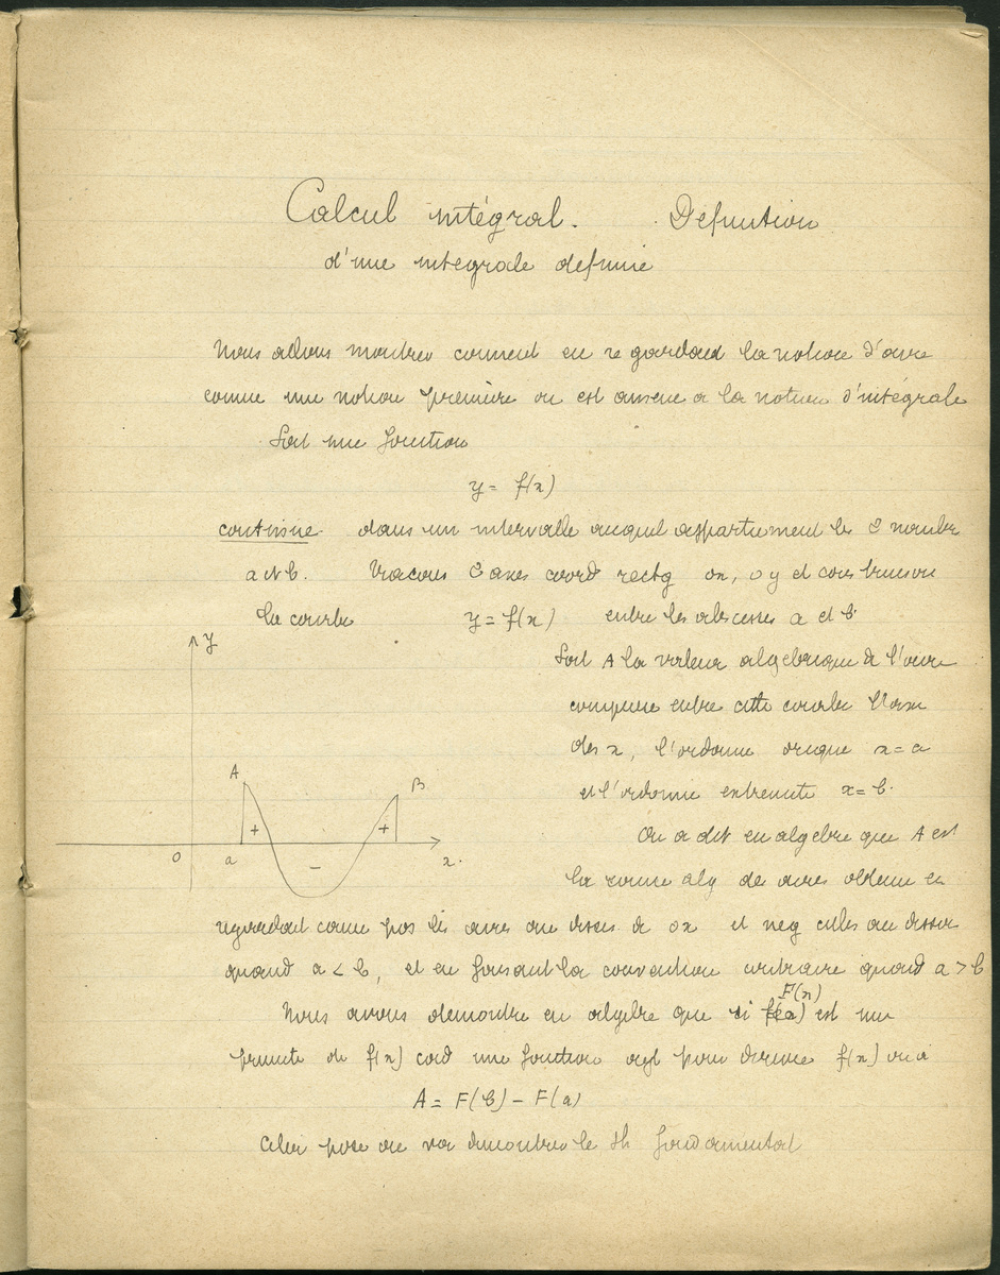 Calcul intégral. Définition
d'une intégrale définie
Nous allons montrer comment en regardant la notion d'aire
comme une notion première on est amené a la notion d'intégrale
Soit une fonction
y = f(x)
continue dans un intervalle auquel appartiennent les 2 nombr
a et b. Tracons 2 axes coord rectg ox, oy et construison
la courbe y = f(x) entre les abscisses a et b
Soit A la valeur algebrique de l'aire
comprise entre cette courbe l'axe
des x, l'ordonne origine x = a
et l'ordonne extremite x = b.
On a dit en algebre que A est
la somme alg des aires obtenue en
regardant comme pos les aires au dessus de ox et neg celles au dessous
quand a < b, et en faisant la convention contraire quand a > b
Nous avons demontre en algebre que si F(x) est une
primite de f(x) cad une fonction ayt pour derivee f(x) on a
A = F(b) - F(a)
Cela pose on va demontrer le th fondamental
y
A
B
+
+
-
o
a
x